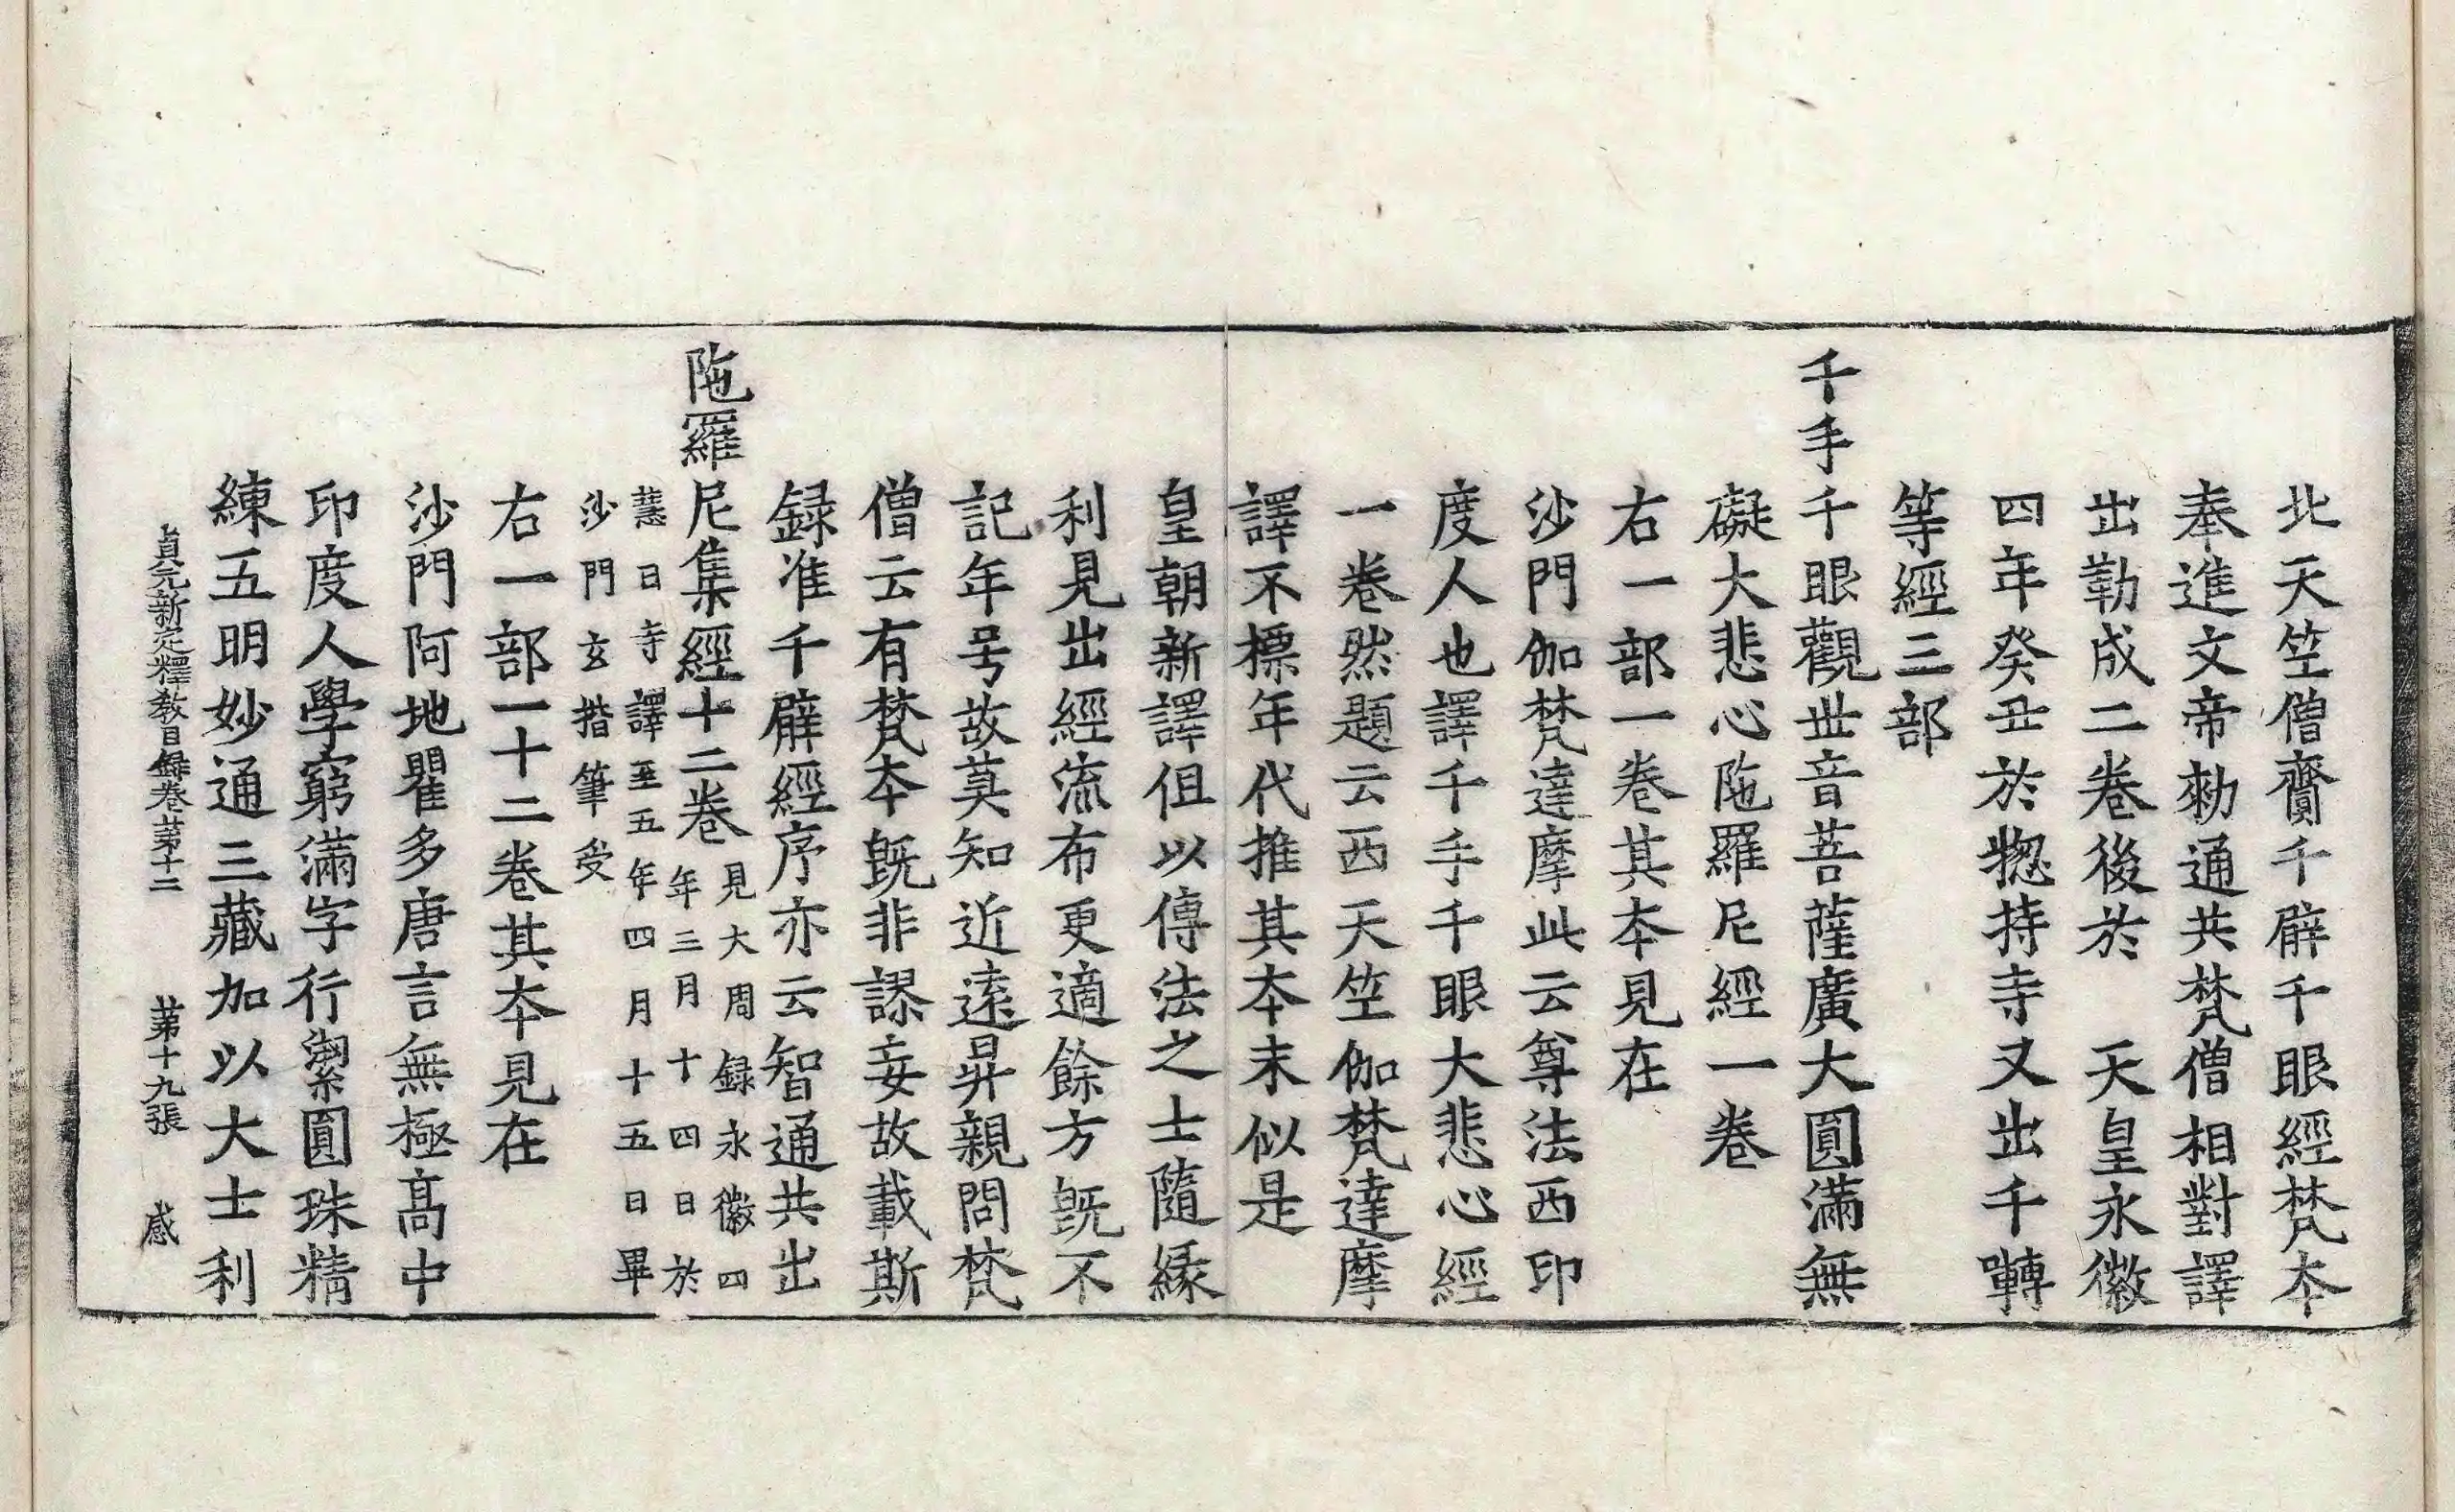 北天笁僧齎千臂千眼經梵夲
奉進文帝勑通共梵僧相對譯
出勒成二卷後於　天皇永徽
四年癸丑於揔持寺又出千囀
等經三部
千手千眼觀世音菩薩廣大圓滿無
礙大悲心陁羅尼經一卷
右一部一卷其夲見在
沙門伽梵達摩此云尊法西印
度人也譯千手千眼大悲心經
一卷然題云西天笁伽梵達摩
譯不標年代推其夲末似是
皇朝新譯但以傳法之士隨緣
利見出經流布更適餘方旣不
記年号故莫知近遠昇親問梵
僧云有梵夲旣非謬妄故載斯
録准千臂經序亦云智通共出
陁羅尼集經十二卷見大周録永徽四
年三月十四日於
慧日寺譯至五年四月十五日畢
沙門玄揩筆受
右一部一十二卷其夲見在
沙門阿地瞿多唐言無極髙中
印度人學窮滿字行潔圓珠精
練五明妙通三藏加以大士利
貞元新定釋教目録卷苐十二　苐十九張　感